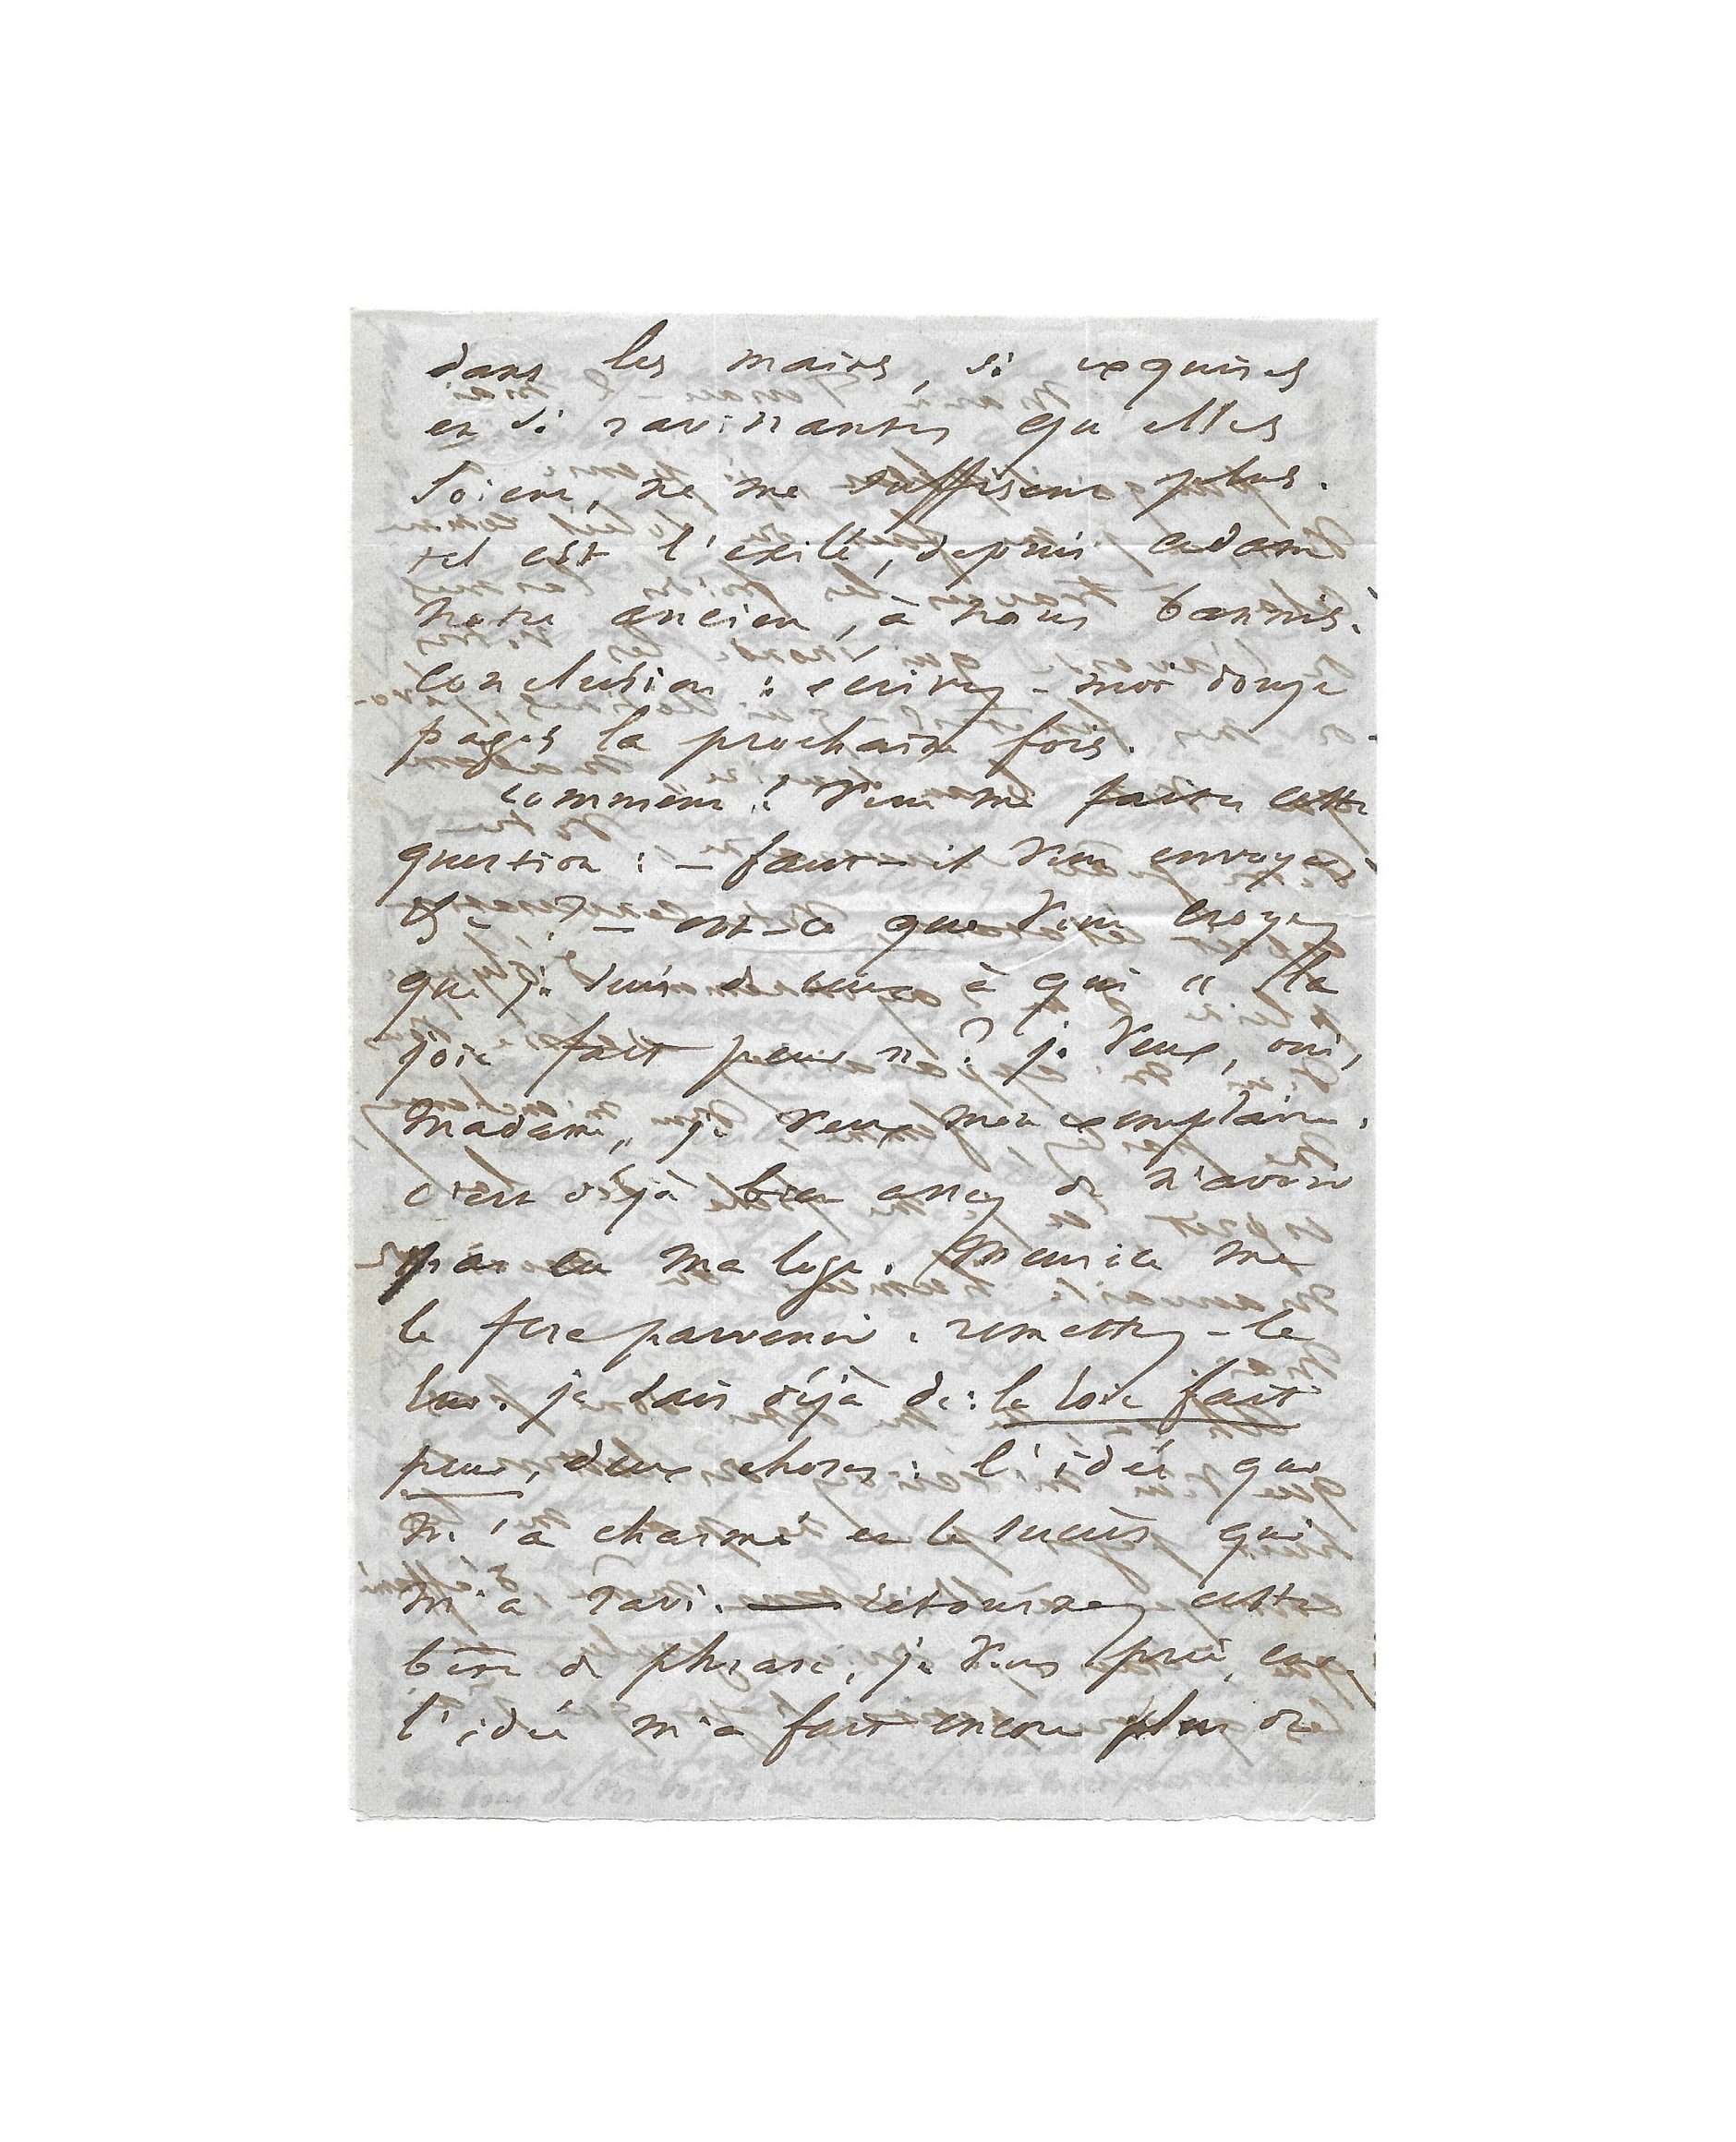 dans les mains, si exquises
et si ravissantes qu'elles
soient, ne me suffisent plus.
tel est l'exilé, depuis adam
notre ancien, à nous bannis.
conclusion : écrivez-moi douze
pages la prochaine fois.
comment ! vous me faites cette
question : – faut-il vous envoyer
– est-ce que vous croyez
que je suis de ceux à qui « la
joie fait peur » ? je veux, oui,
madame, je veux mon exemplaire.
c'est déjà bien assez de n'avoir
pas eu ma loge. Meurice me
le fera parvenir. remettez-le
lui. je sais déjà de : la joie fait
peur, deux choses : l'idée qui
m'a charmé et le succès qui
m'a ravi. – retournez cette
bête de phrase, je vous prie, car
l'idée m'a fait encore plus de